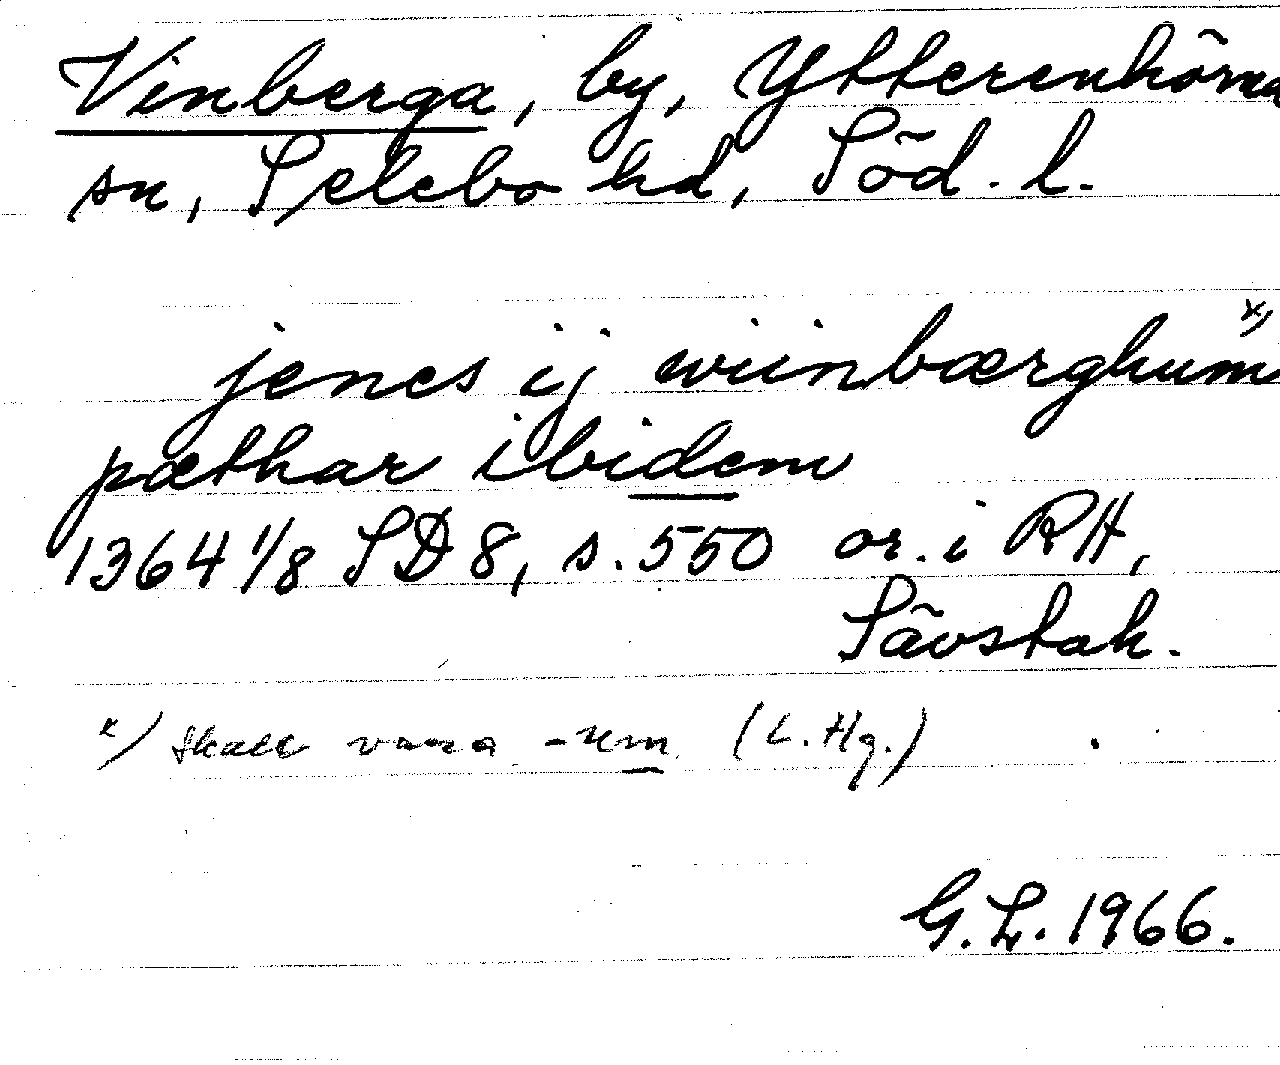 Vinberga, by, Ytterenhörna
sn, Selebo hd, Söd. l.
jenes ij wiinbærghum x)
pæthar ibidem
1364 1/8 SD 8, s. 550 or. i RA,
Sävstah.
x) Skall vara -um (L. Hg.)
G. L. 1966.